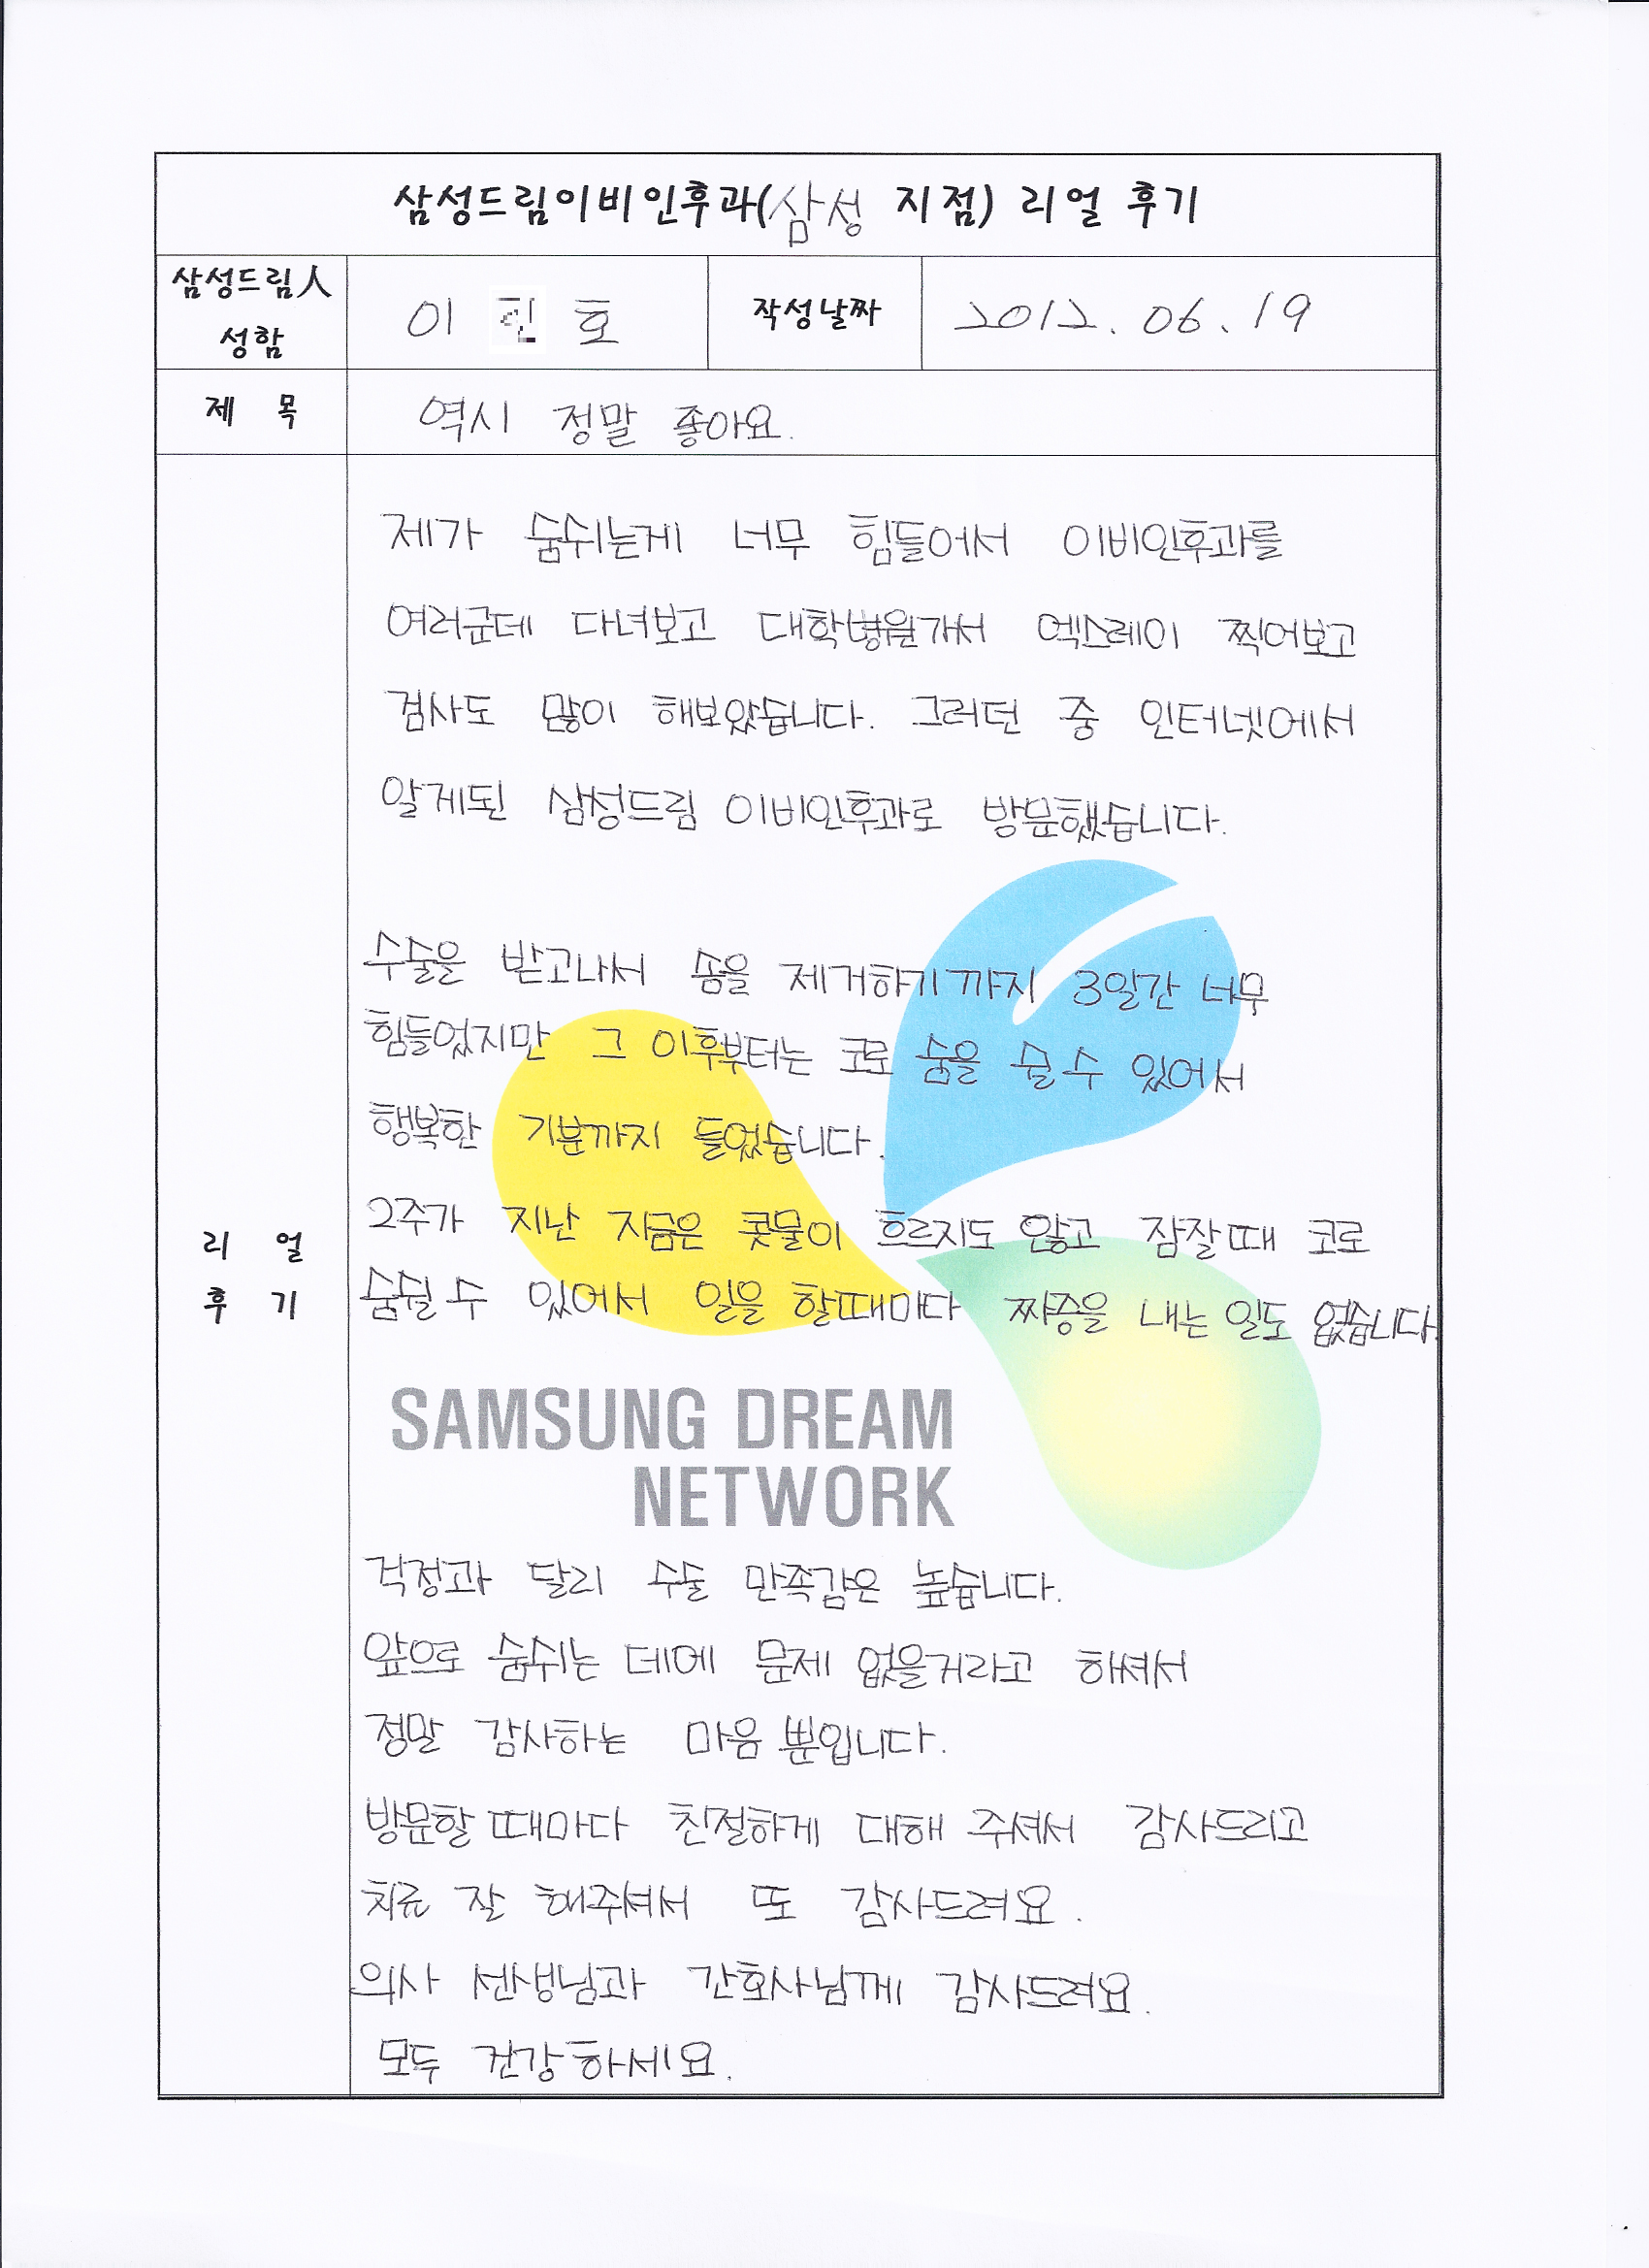 삼성드림이비인후과(삼성 지점) 리얼 후기
삼성드림人
성함
이 호
작성날짜
2012. 06. 19
제 목
역시 정말 좋아요.
제가 숨쉬는게 너무 힘들어서 이비인후과를
여러군데 다녀보고 대학병원가서 엑스레이 찍어보고
검사도 많이 해보았습니다. 그러던 중 인터넷에서
알게된 삼성드림 이비인후과로 방문했습니다.
수술을 받고나서 솜을 제거하기까지 3일간 너무
힘들었지만 그 이후부터는 코로 숨을 쉴 수 있어서
행복한 기분까지 들었습니다.
2주가 지난 지금은 콧물이 흐르지도 않고 잠잘때 코로
숨쉴 수 있어서 일을 할때마다 짜증을 내는 일도 없습니다.
리 얼
후 기
SAMSUNG DREAM
NETWORK
걱정과 달리 수술 만족감은 높습니다.
앞으로 숨쉬는 데에 문제 없을거라고 하셔서
정말 감사하는 마음 뿐입니다.
방문할 때마다 친절하게 대해 주셔서 감사드리고
치료 잘 해주셔서 또 감사드려요.
의사 선생님과 간호사님께 감사드려요.
모두 건강하세요.